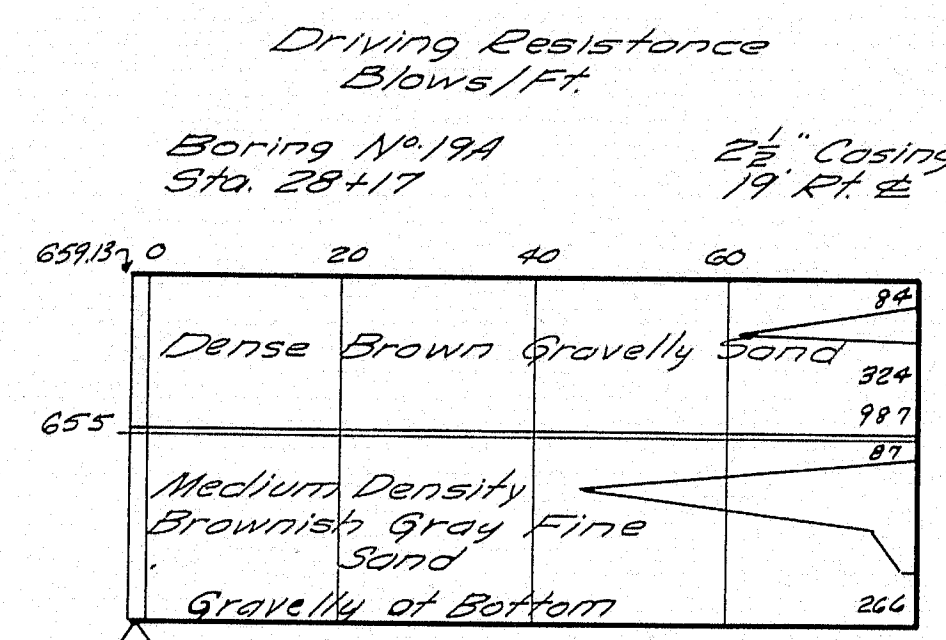 Driving Resistance
Blows/Ft.
Boring No. 19A
2 1/2" Casing
Sta. 28+17
19' Rt. ℄
659.13 0 20 40 60
84
Dense Brown Gravelly Sand
324
987
655
87
Medium Density
Brownish Gray Fine
Sand
Gravelly at Bottom
266